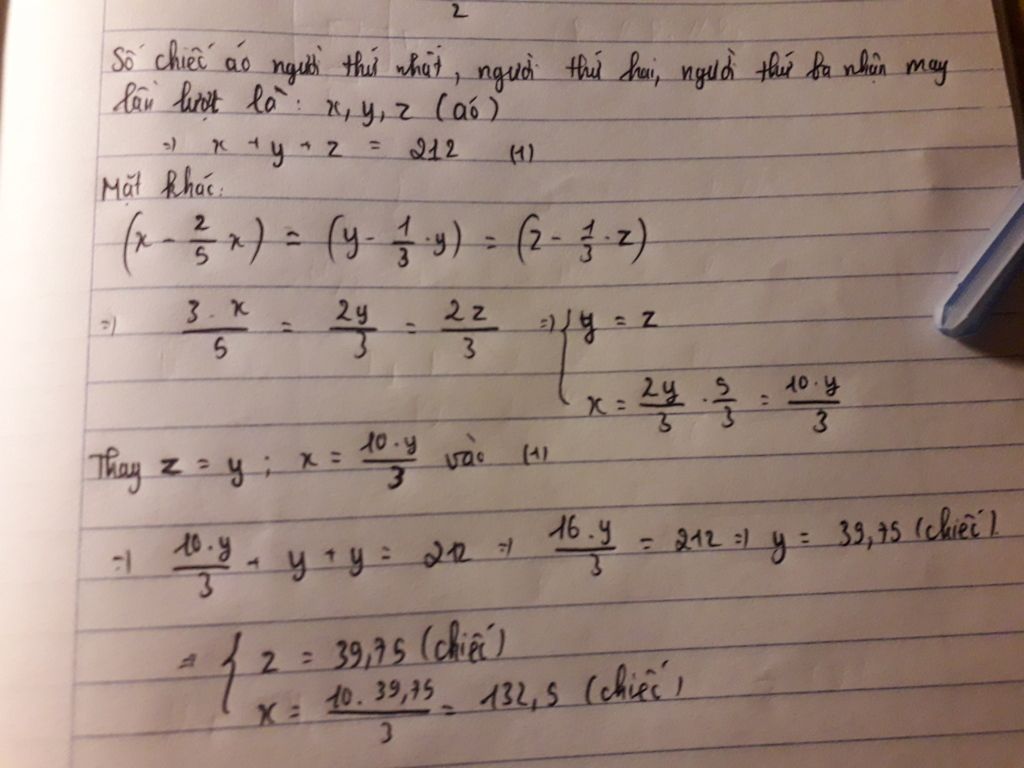 2
Số chiếc áo người thứ nhất, người thứ hai, người thứ ba nhận may
lần lượt là: x, y, z (áo)
=> x + y + z = 212 (1)
Mặt khác:
(x - 2/5 x) = (y - 1/3 . y) = (z - 1/3 . z)
=> 3 . x / 5 = 2y / 3 = 2z / 3 => { y = z
x = 2y/3 . 5/3 = 10 . y / 3
Thay z = y ; x = 10 . y / 3 vào (1)
=> 10 . y / 3 + y + y = 212 => 16 . y / 3 = 212 => y = 39,75 (chiếc)
=> { z = 39,75 (chiếc)
x = 10 . 39,75 / 3 = 132,5 (chiếc)